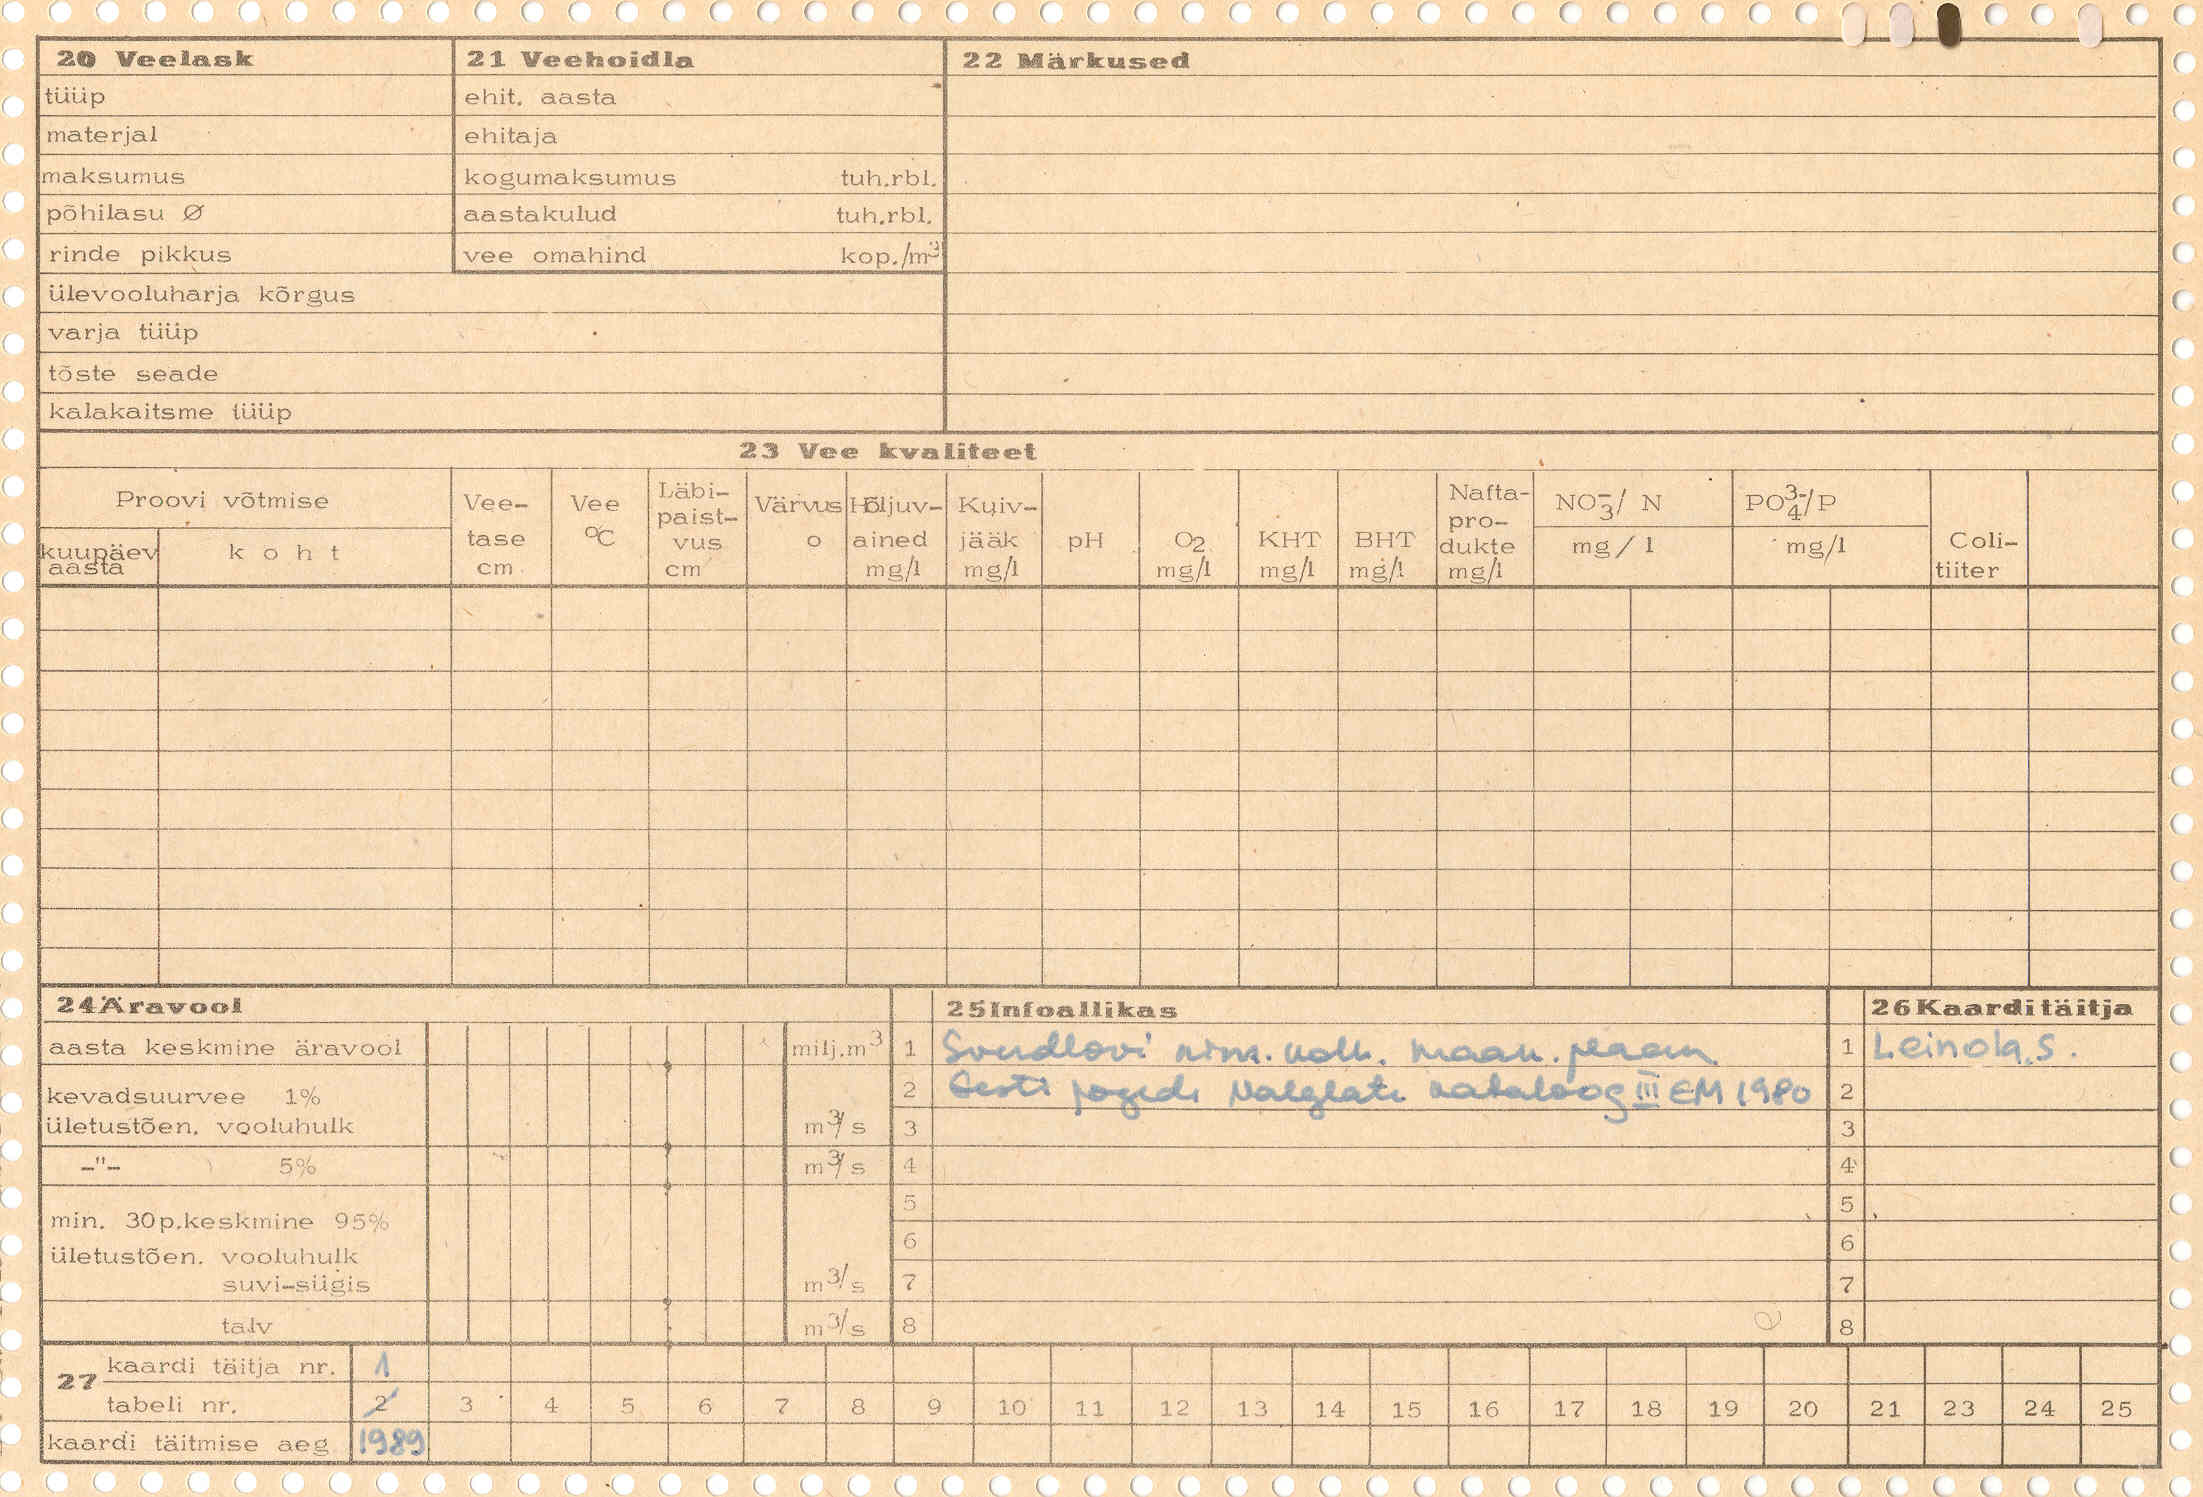 20 Veelask
tüüp
materjal
maksumus
põhilasu Ø
rinde pikkus
ülevooluharja kõrgus
varja tüüp
tõste seade
kalakaitsme tüüp
21 Veehoidla
ehit. aasta
ehitaja
kogumaksumus tuh.rbl.
aastakulud tuh.rbl.
vee omahind kop./m³
22 Märkused
23 Vee kvaliteet
Proovi võtmise
kuupäev
aasta
koht
Vee-
tase
cm
Vee
°C
Läbi-
paist-
vus
cm
Värvus
o
Hõljuv-
ained
mg/l
Kuiv-
jääk
mg/l
pH
O2
mg/l
KHT
mg/l
BHT
mg/l
Nafta-
pro-
dukte
mg/l
NO₃⁻/ N
mg/l
PO₄³⁻/P
mg/l
Coli-
tiiter
24 Äravool
aasta keskmine äravool milj.m³
kevadsuurvee 1%
ületustõen. vooluhulk m³/s
-"- 5% m³/s
min. 30p.keskmine 95%
ületustõen. vooluhulk
suvi-sügis m³/s
talv m³/s
25 Infoallikas
1 nim. kolh. maak. plaan
2 Eesti jõgede kataloog III EM 1980
3
4
5
6
7
8
26 Kaardi täitja
1 Leinola, S.
2
3
4
5
6
7
8
27
kaardi täitja nr. 1
tabeli nr. 2 3 4 5 6 7 8 9 10 11 12 13 14 15 16 17 18 19 20 21 23 24 25
kaardi täitmise aeg 1989